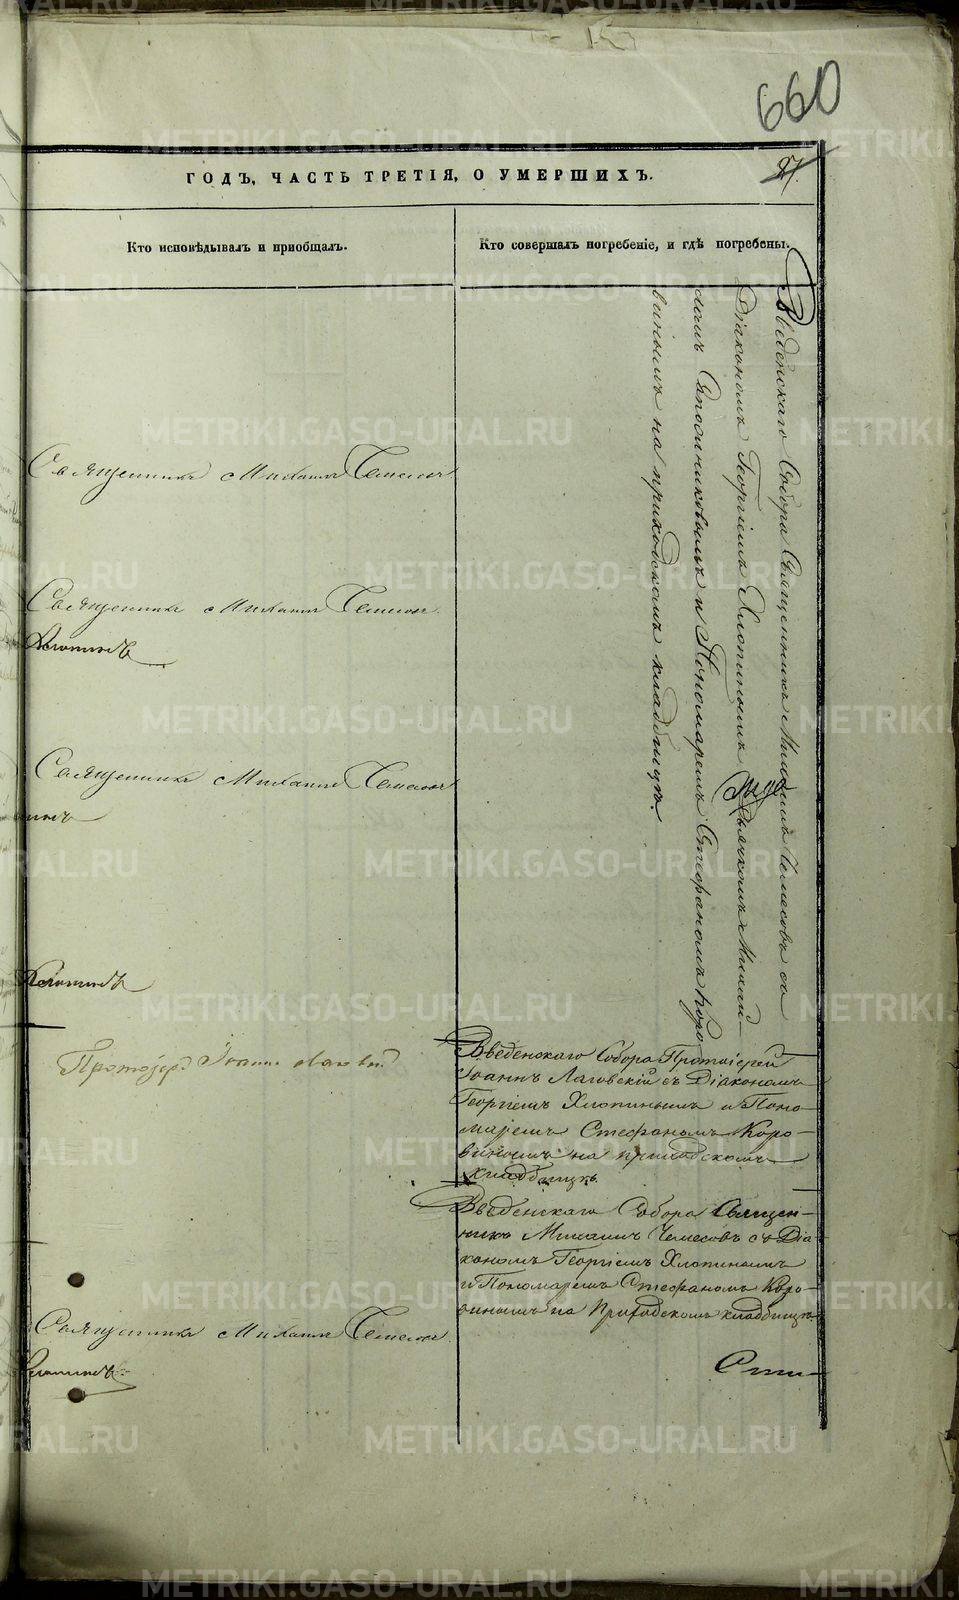 660
27.
ГОДЪ, ЧАСТЬ ТРЕТІЯ, О УМЕРШИХЪ.
Кто исповѣдывалъ и пріобщалъ.
Кто совершалъ погребеніе, и гдѣ погребены.
Введенскаго Собора Священникъ Михаилъ Чемесовъ съ
Діакономъ Георгіемъ Хлопинымъ Дьячкомъ
Стефаномъ Коро
винымъ на приходскомъ кладбищѣ
Священникъ Михаилъ Чемесовъ
Священникъ Михаилъ Чемесовъ
Хлопинъ
Священникъ Михаилъ Чемесовъ
Хлопинъ
Протоіерей Іоаннъ Лаговскій
Введенскаго Собора Протоіерей
Іоаннъ Лаговскій съ Діакономъ
Георгіемъ Хлопинымъ и Поно-
маремъ Стефаномъ Коро-
винымъ на приходскомъ
кладбищѣ.
Введенскаго Собора Священ-
никъ Михаилъ Чемесовъ съ Діа
кономъ Георгіемъ Хлопинымъ
и Пономаремъ Стефаномъ Коро
винымъ на Приходскомъ кладбищѣ
Священникъ Михаилъ Чемесовъ
Хлопинъ
METRIKI.GASO-URAL.RU